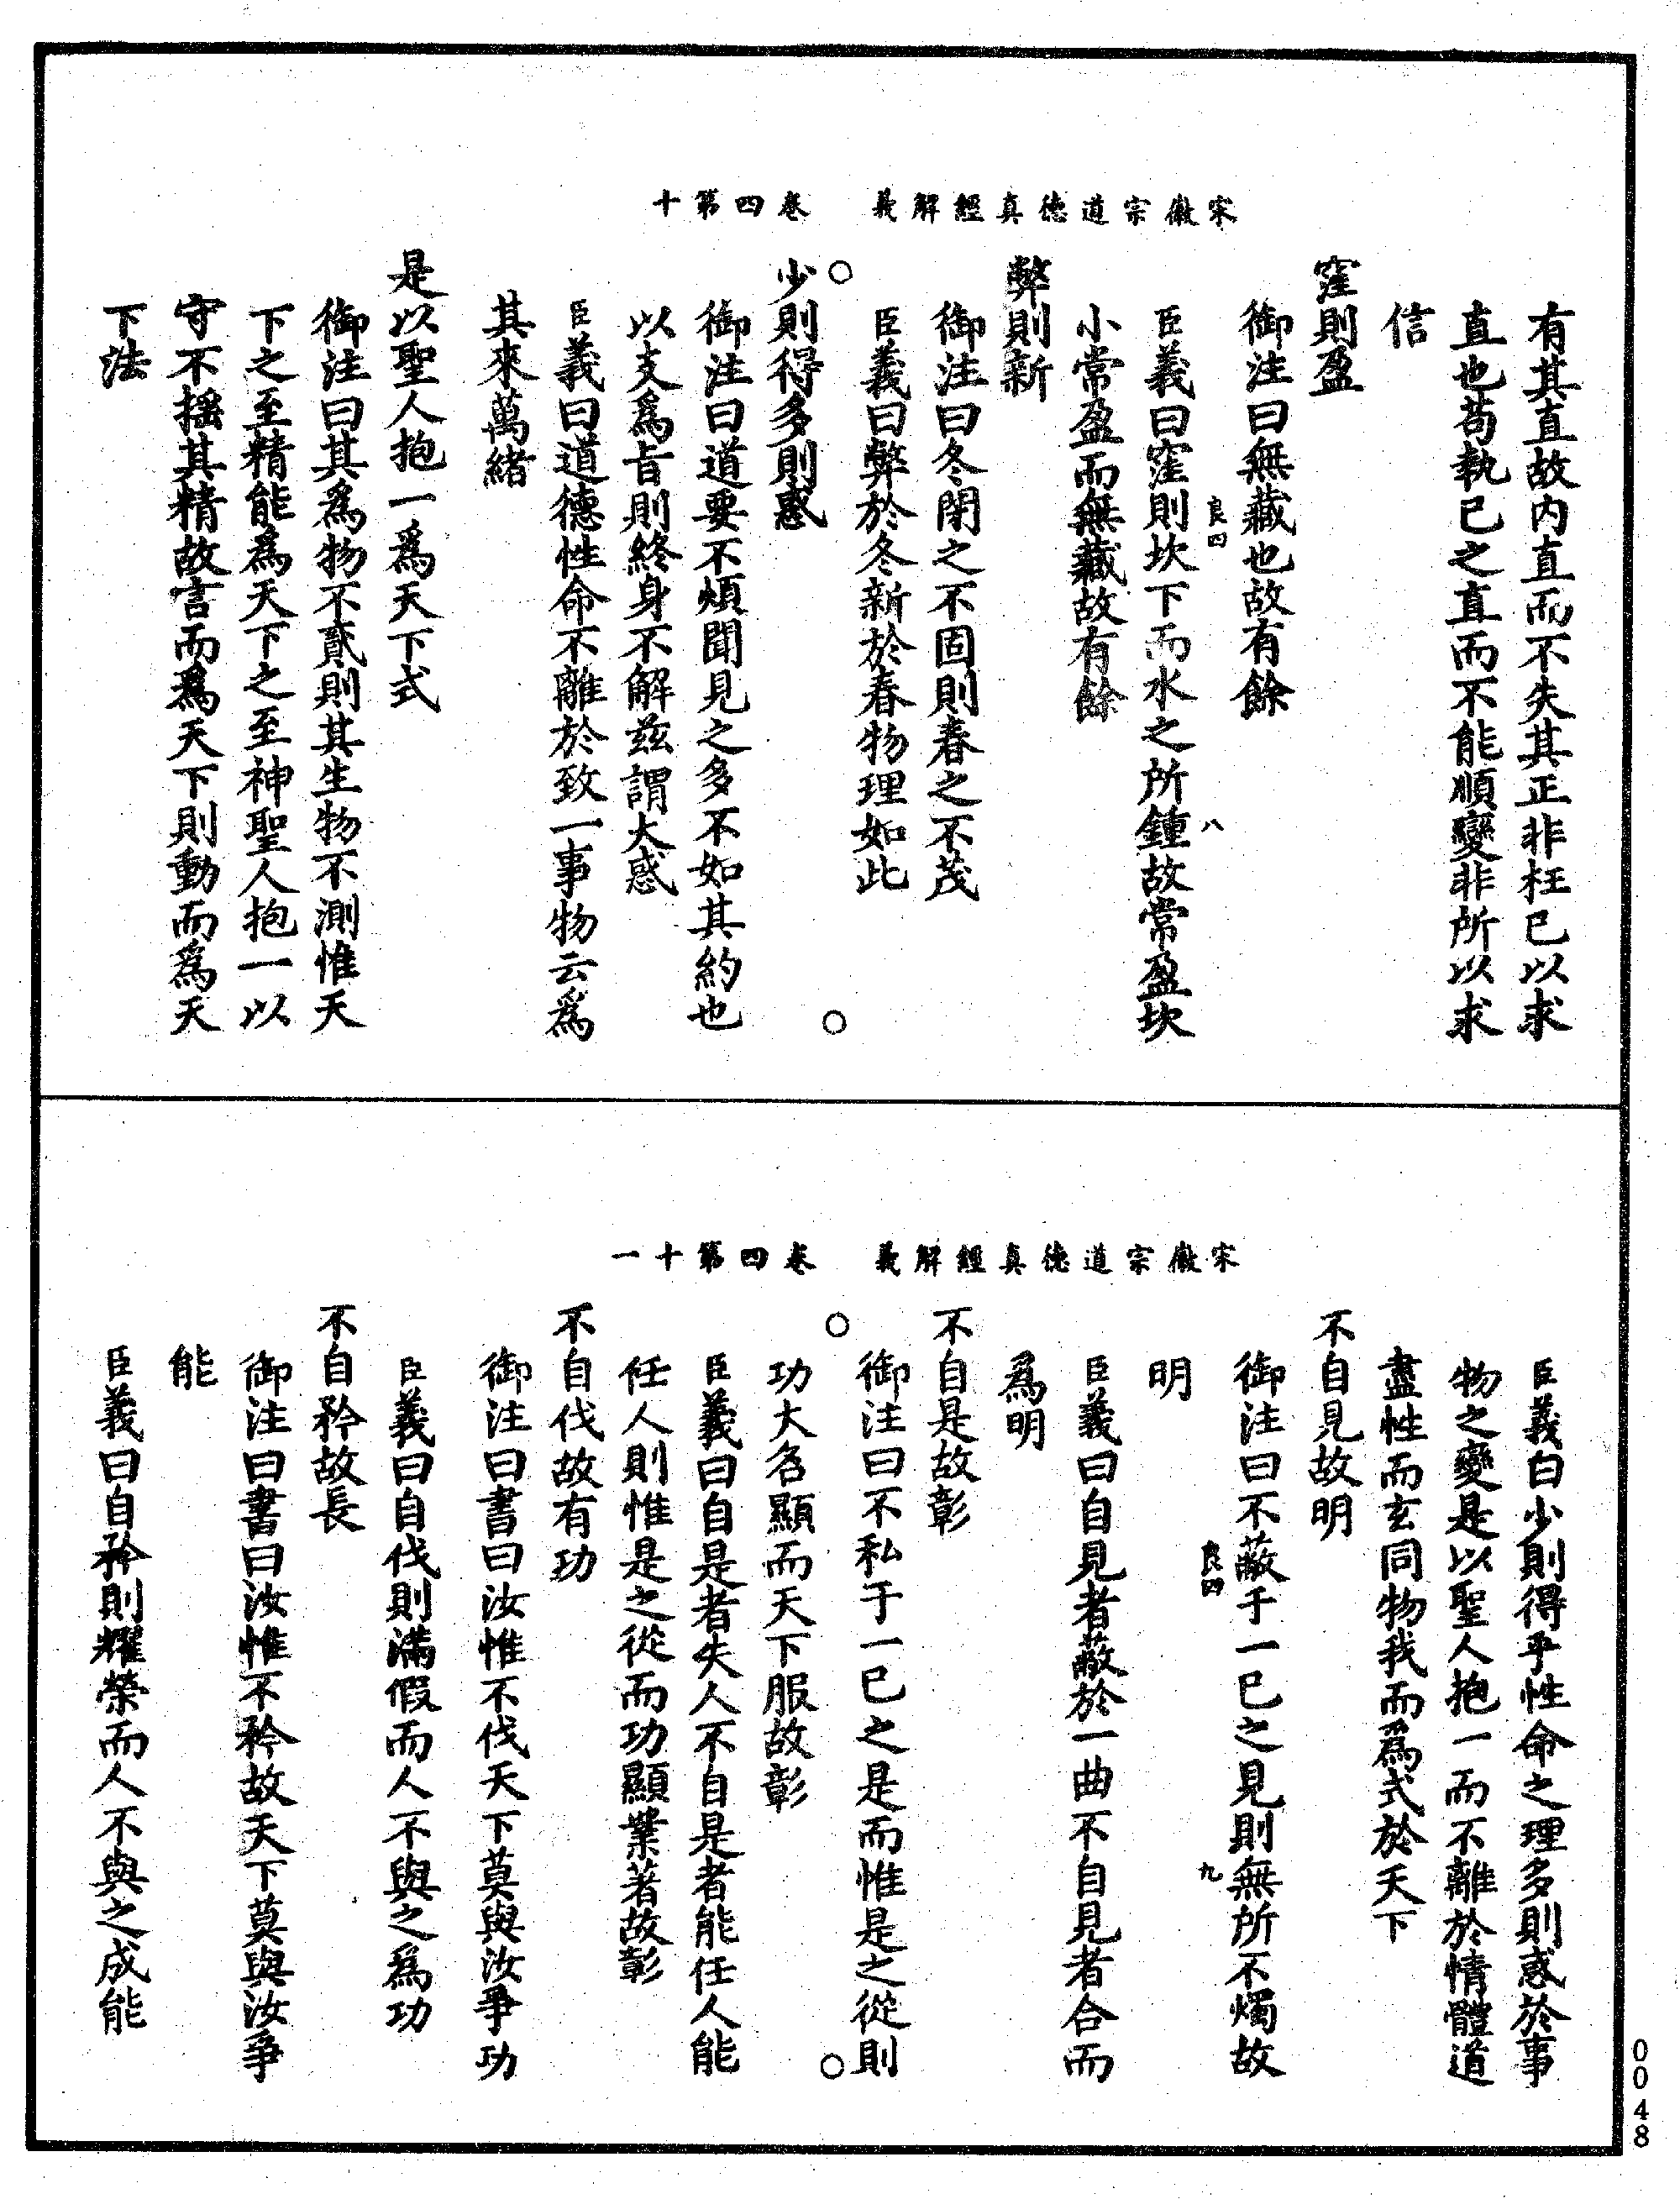 宋徽宗道德真經解義　卷四第十
有其直故内直而不失其正非枉已以求
直也苟執已之直而不能順變非所以求
信
窪則盈
御注曰無藏也故有餘
良四　八
臣義曰窪則坎下而水之所鍾故常盈坎
小常盈而無藏故有餘
弊則新
御注曰冬閉之不固則春之不茂
臣義曰弊於冬新於春物理如此
○　○
少則得多則惑
御注曰道要不煩聞見之多不如其約也
以支爲旨則終身不解兹謂大惑
臣義曰道德性命不離於致一事物云爲
其來萬緒
是以聖人抱一爲天下式
御注曰其爲物不貳則其生物不測惟天
下之至精能爲天下之至神聖人抱一以
守不摇其精故言而爲天下則動而爲天
下法
宋徽宗道德真經解義　卷四第十一
臣義曰少則得乎性命之理多則惑於事
物之變是以聖人抱一而不離於情體道
盡性而玄同物我而爲式於天下
不自見故明
御注曰不蔽于一已之見則無所不燭故
良四　九
明
臣義曰自見者蔽於一曲不自見者合而
爲明
不自是故彰
御注曰不私于一已之是而惟是之從則
○　○
功大名顯而天下服故彰
臣義曰自是者失人不自是者能任人能
任人則惟是之從而功顯業著故彰
不自伐故有功
御注曰書曰汝惟不伐天下莫與汝爭功
臣義曰自伐則滿假而人不與之爲功
不自矜故長
御注曰書曰汝惟不矜故天下莫與汝爭
能
臣義曰自矜則耀榮而人不與之成能
0048